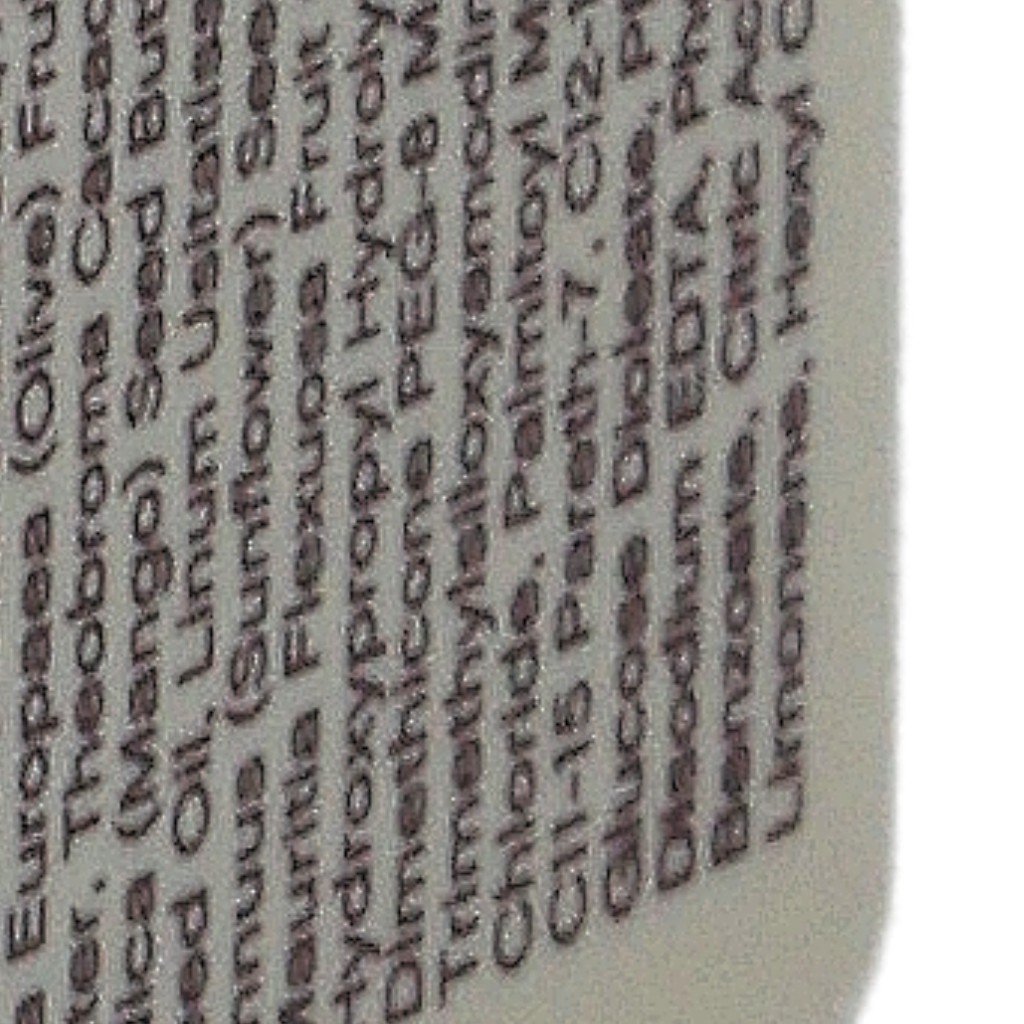 a Europaea (Olive) Fru
ter, Theobroma Cacao
dica (Mango) Seed But
ed Oil, Linum Usitatiss
nnuus (Sunflower) See
Mauritia Flexuosa Fruit
Hydroxypropyl Hydroly
Dimethicone PEG-8 M
Trimethylsiloxyamodim
Chloride, Palmitoyl M
C11-15 Pareth-7, C12-1
Glucose Dioleate, P
Disodium EDTA, Phe
Benzoate, Citric Ac
Limonene, Hexyl C